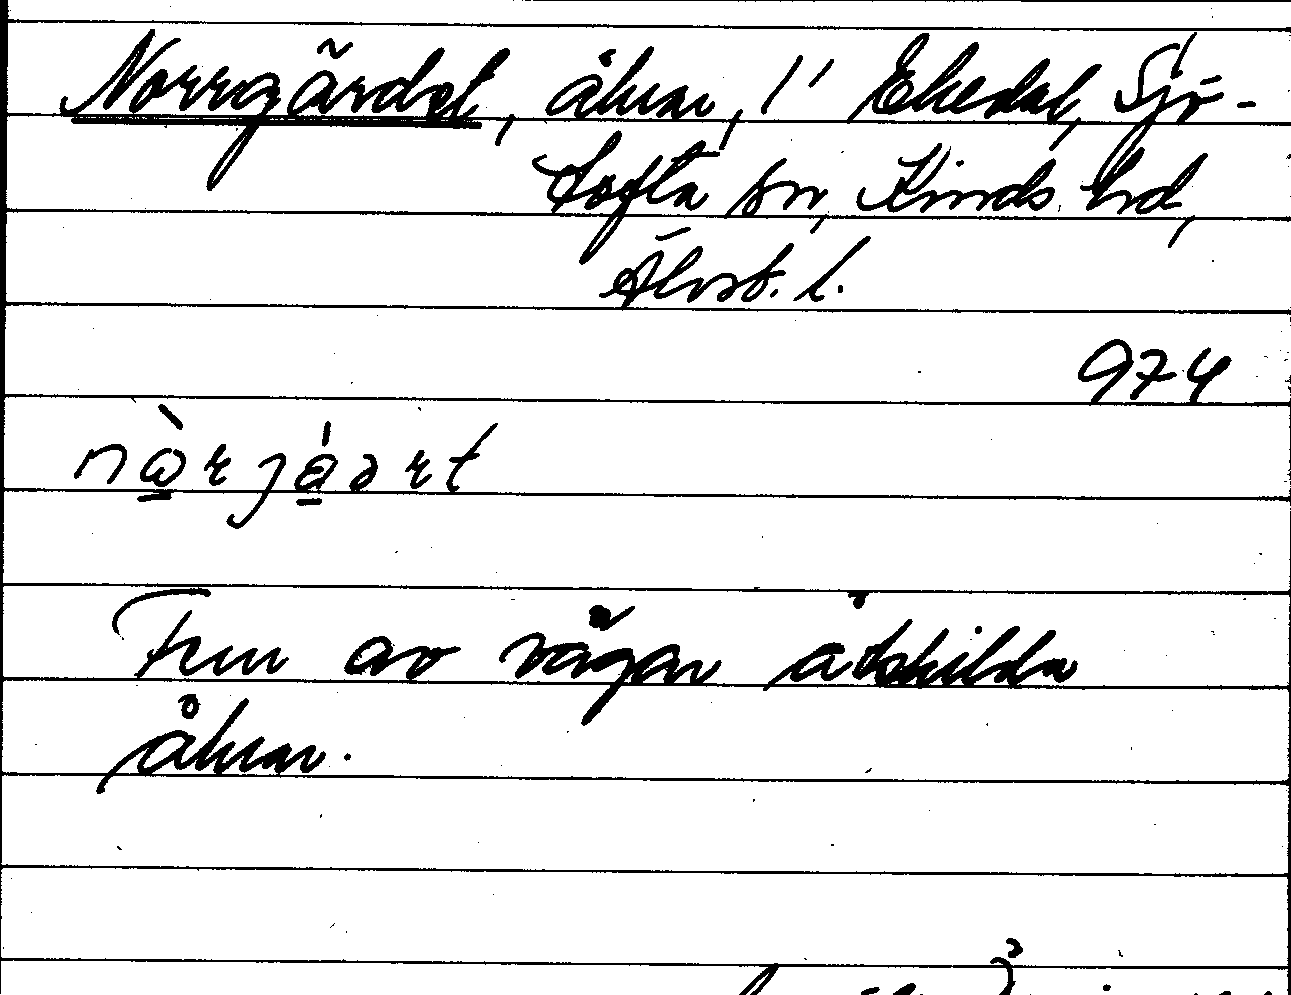 Norrgärdet, åkrar, 1/1 Ekedal, Sjö-
tofta sn, Kinds hd,
Älvsb. l.
974
nὼrjä́ərt
Fem av vägar åtskilda
åkrar.